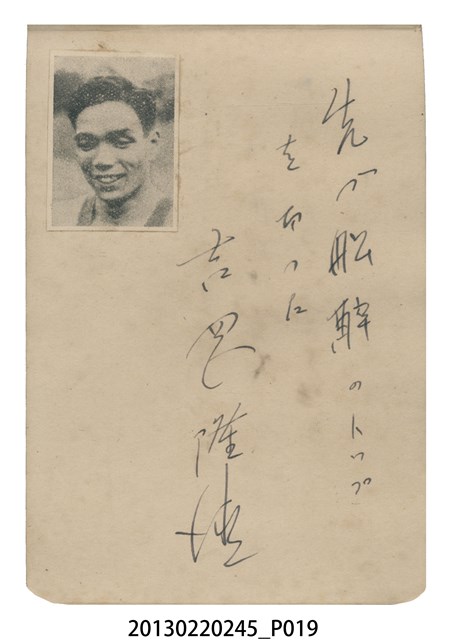 先づ船酔のトップ
を切つた
吉岡隆徳
20130220245_P019